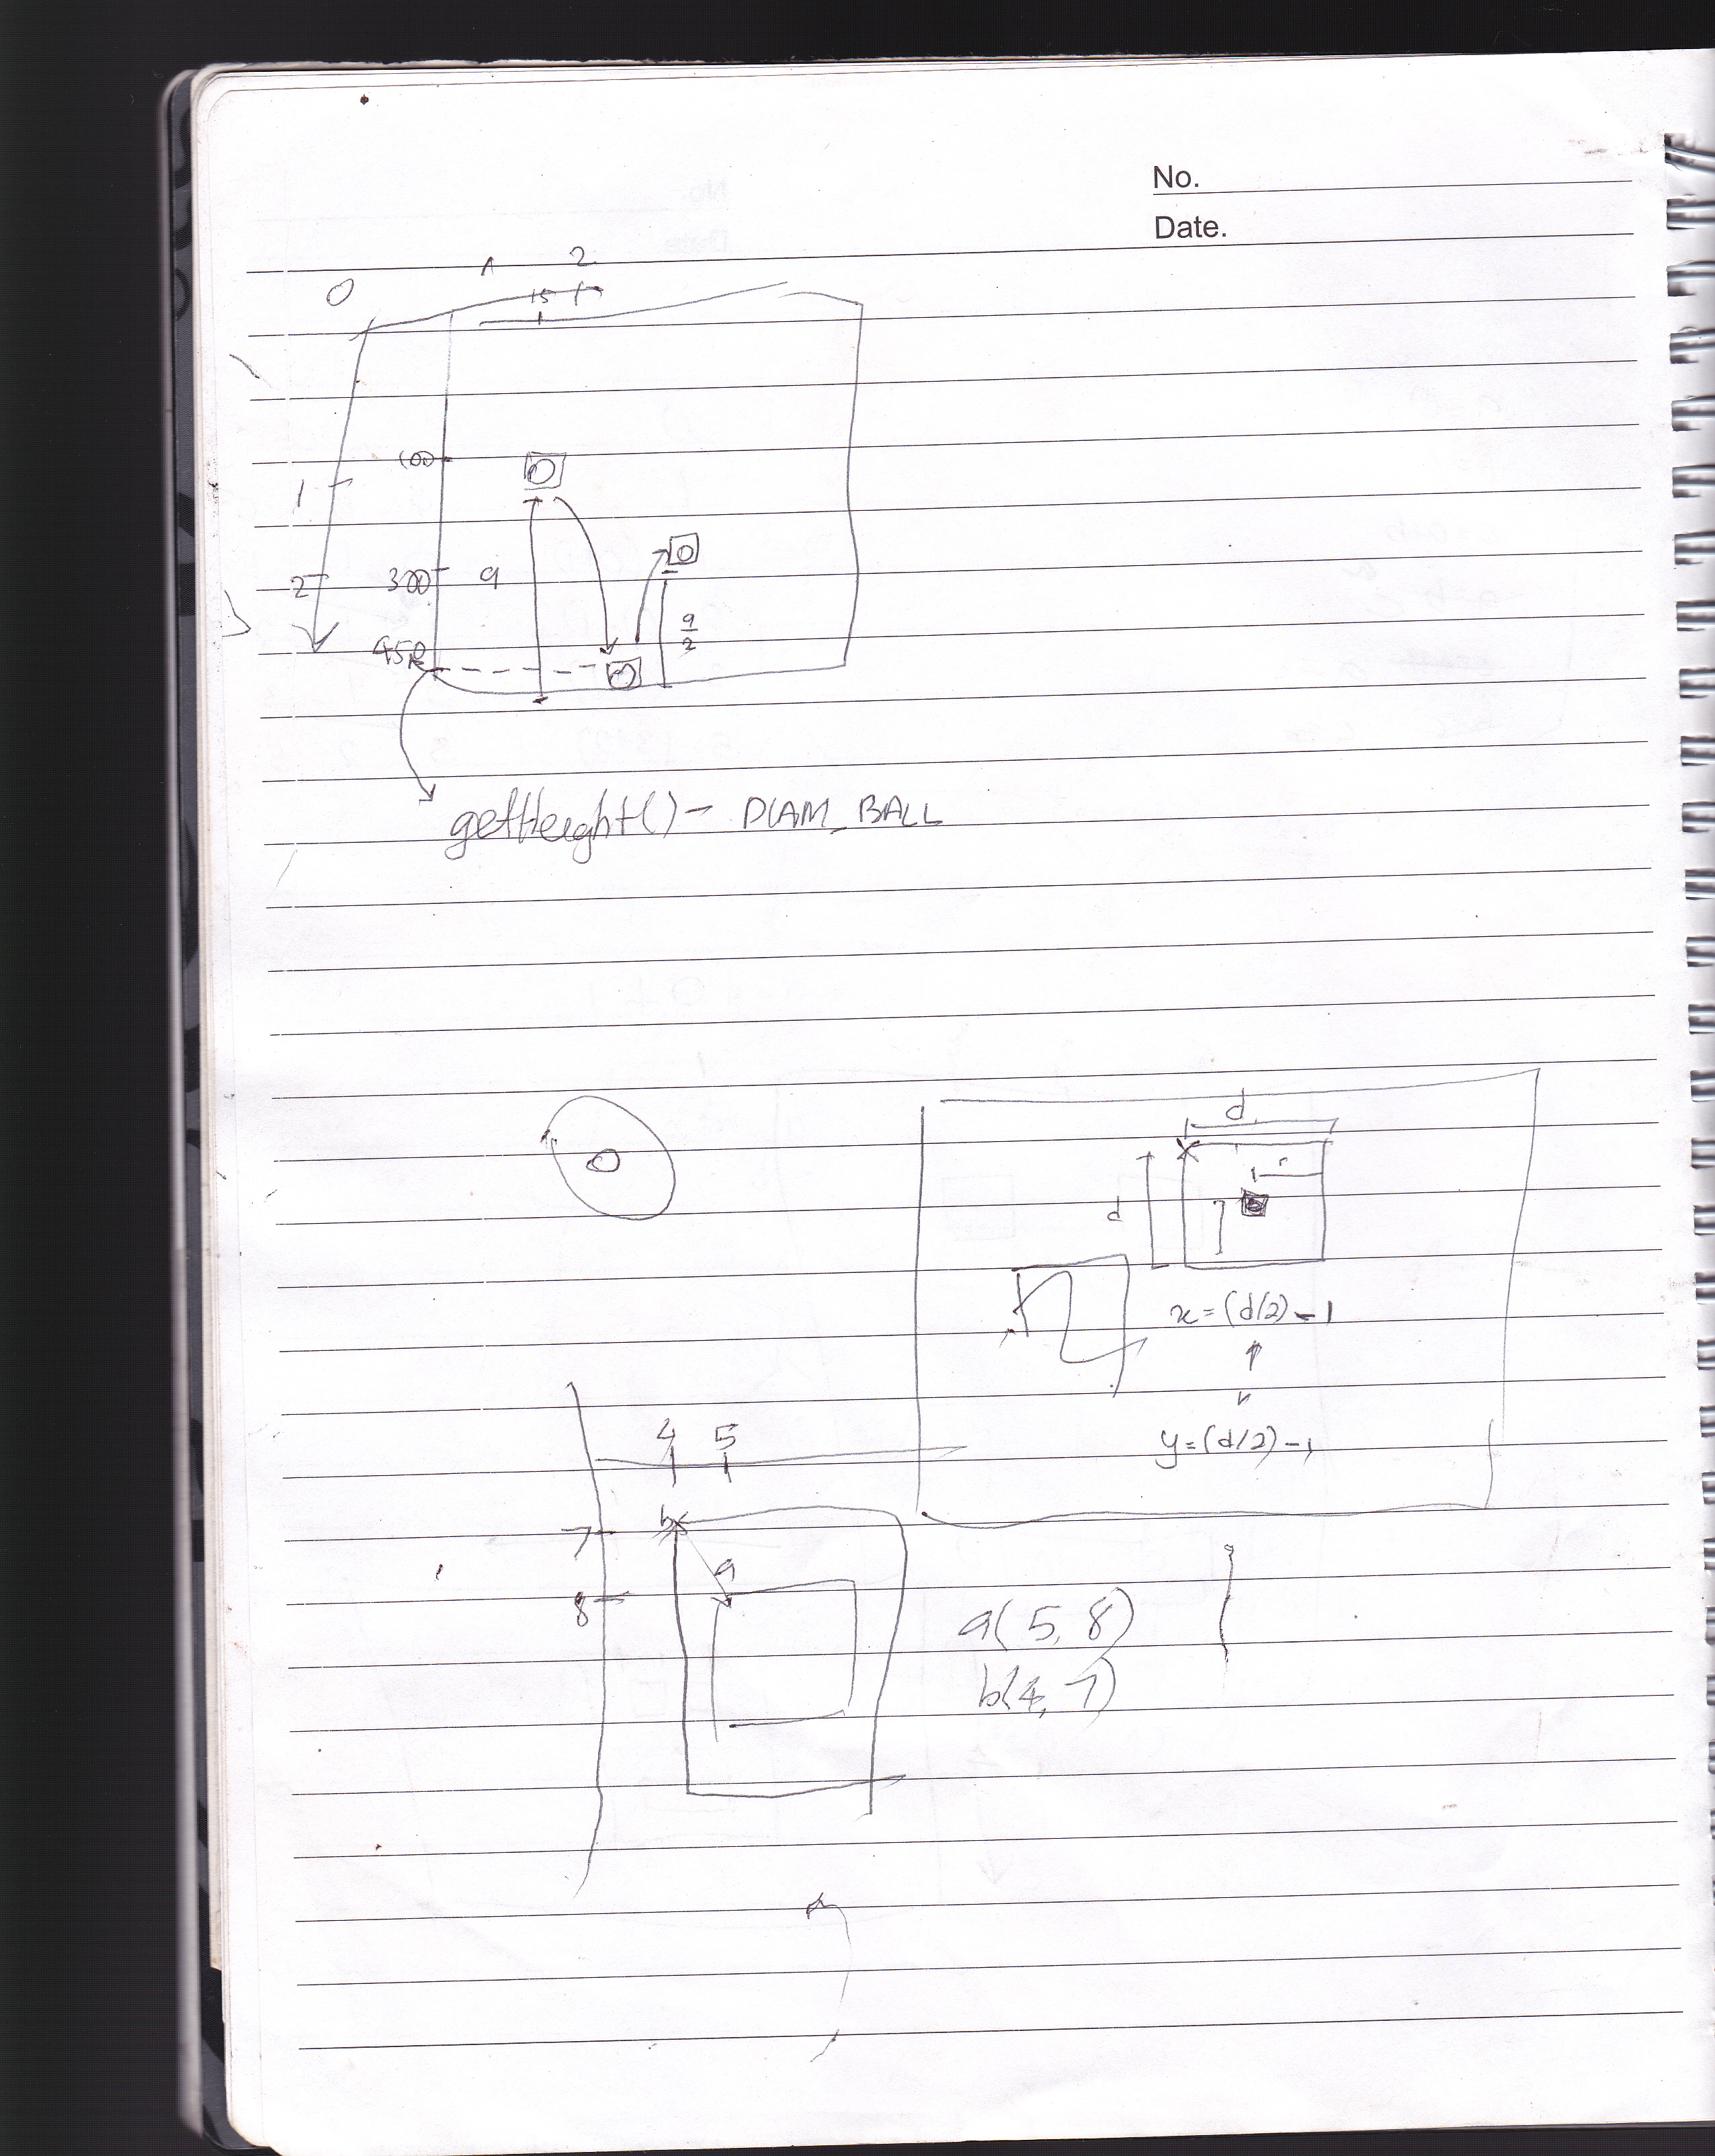 No.
Date.
0
1 2
15
100
1
2 300 a
a/2
450
getHeight() - DIAM_BALL
d
r
d
x = (d/2) - 1
y = (d/2) - 1
4 5
b
7
a
8
a(5, 8)
b(4, 7)